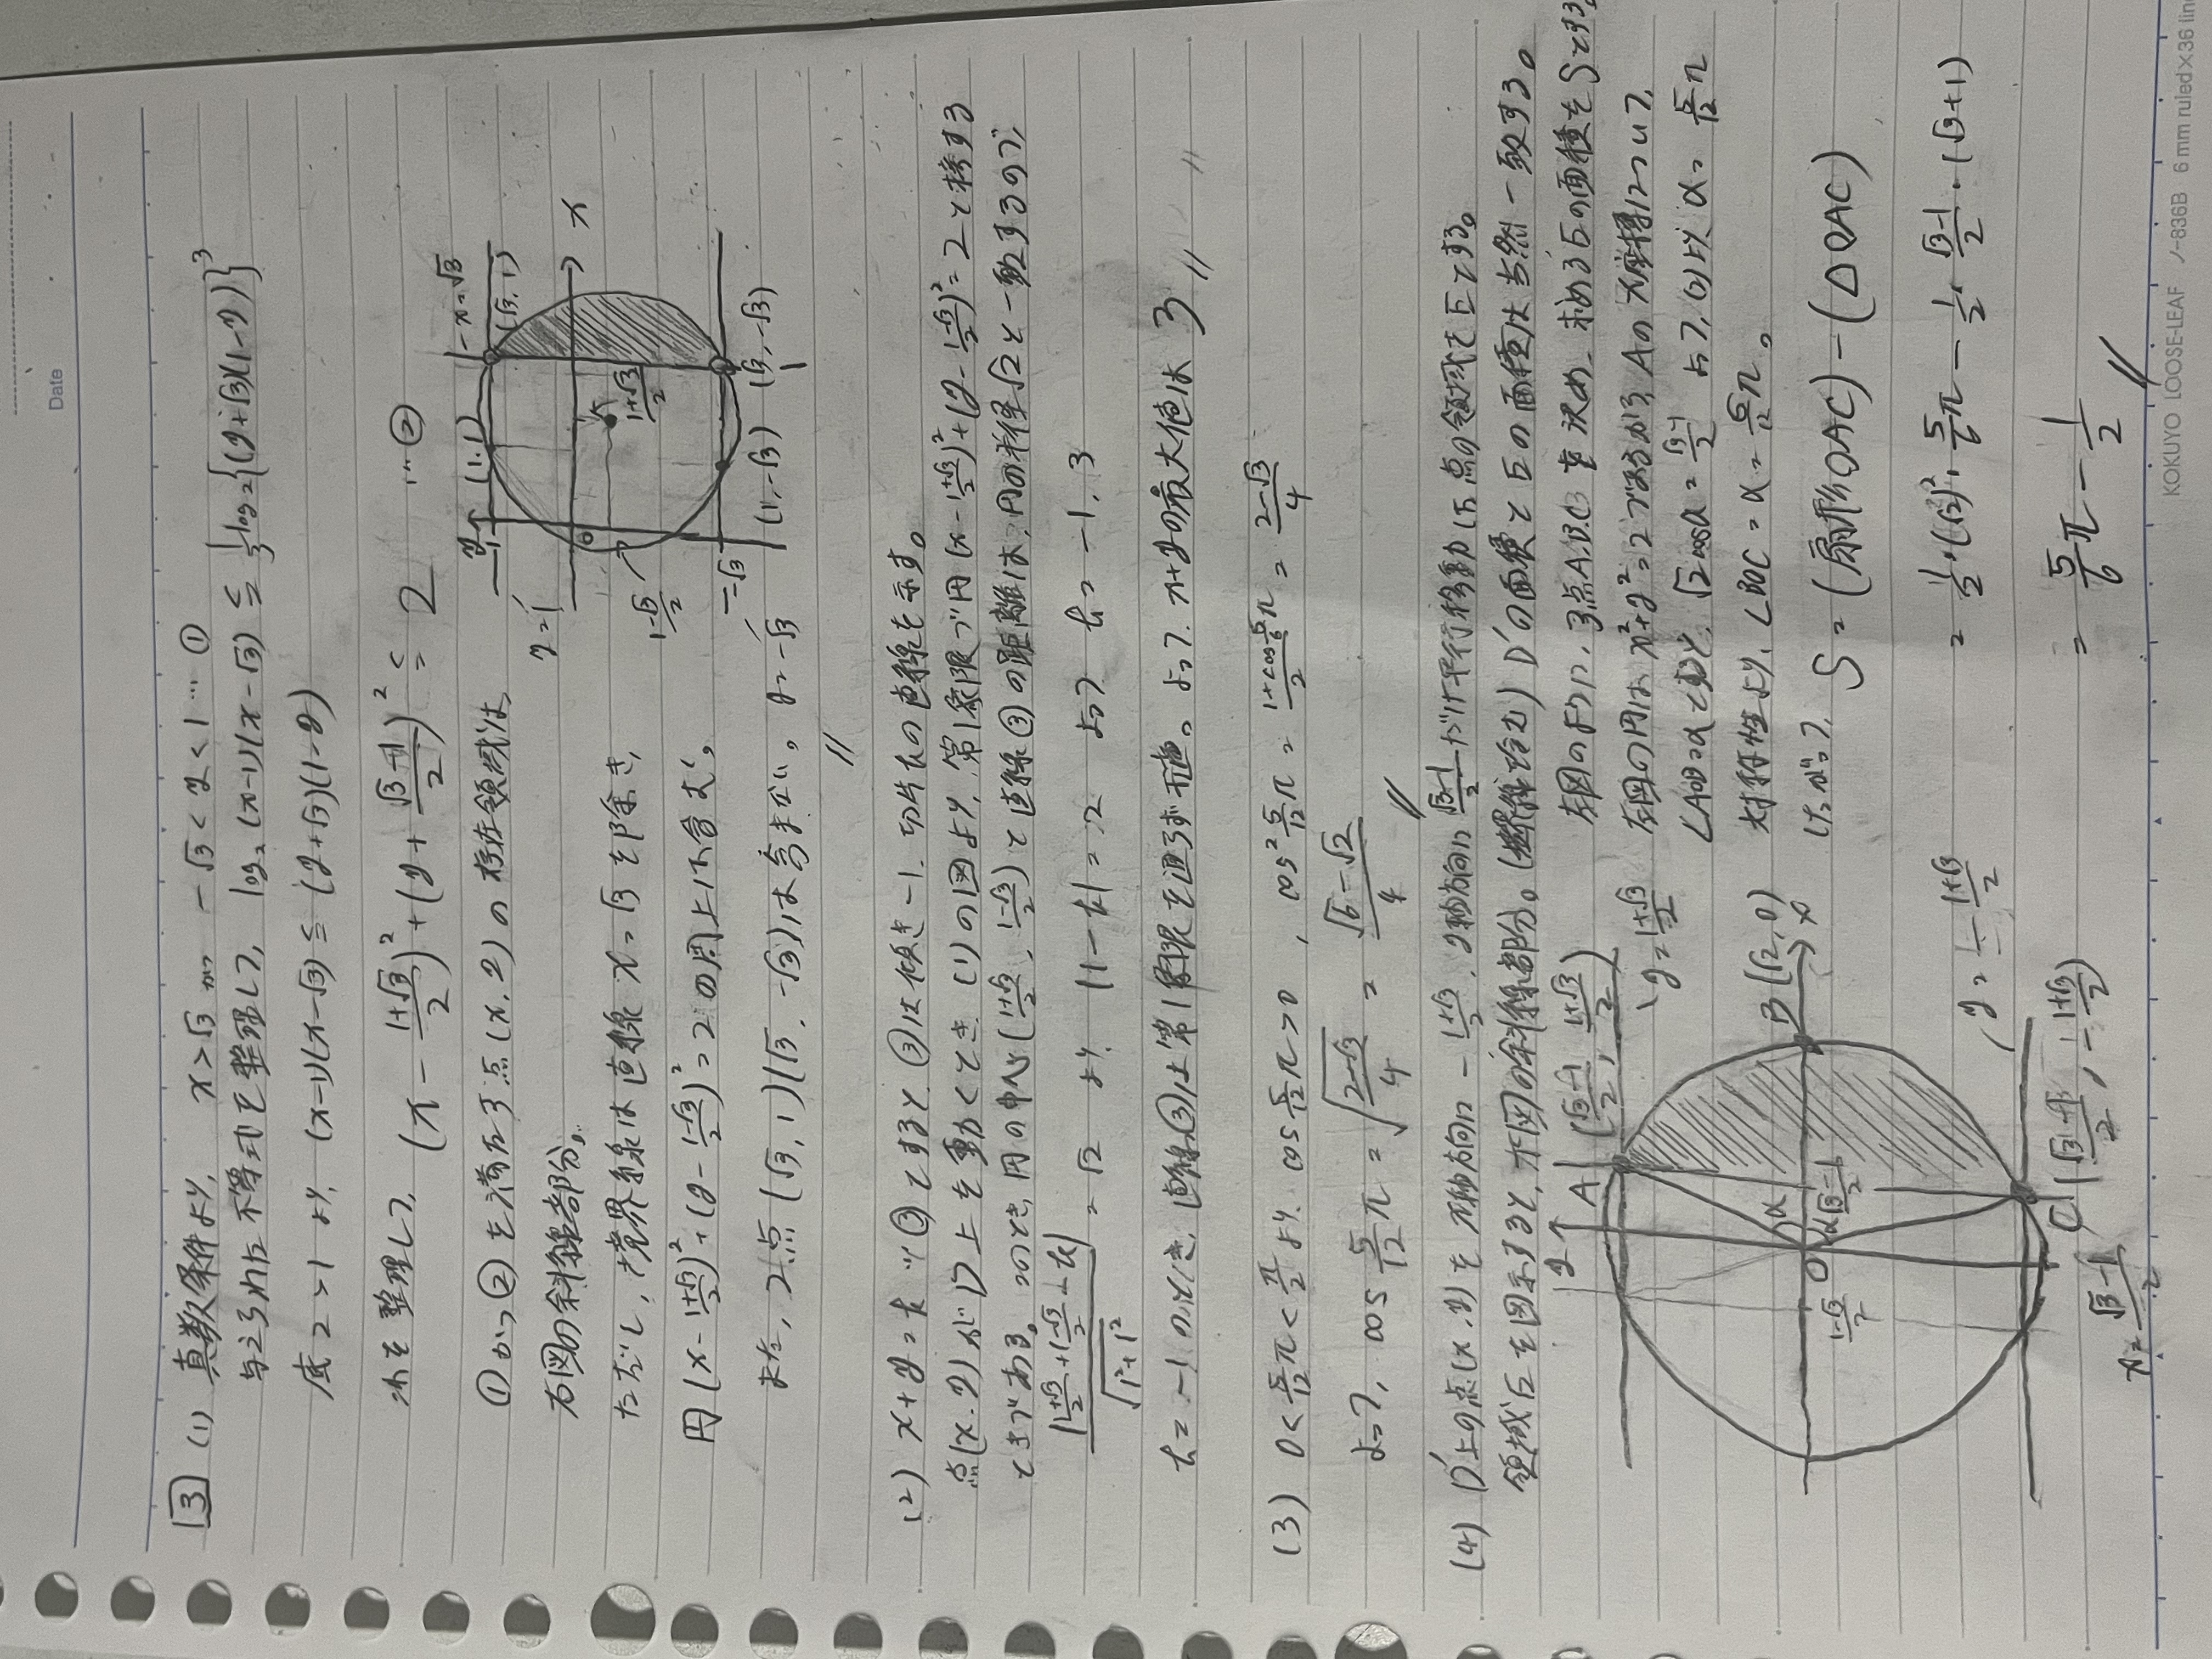 Date
[3] (1) 真数条件より、 x>√3 かつ -√3<y<1 … ①
与えられた不等式を整理して、 log₂(x-1)(x-√3) ≦ 1/3 log₂{(y+√3)(1-y)}³
底2>1 より、 (x-1)(x-√3) ≦ (y+√3)(1-y)
これを整理して、 (x - (1+√3)/2)² + (y + (√3-1)/2)² ≦ 2 … ②
①かつ②を満たす点(x,y)の存在領域は
右図の斜線部分。
ただし、境界線は直線 x=√3 を除き、
円(x-(1+√3)/2)²+(y-(1-√3)/2)²=2の周上は含む。
また、2点(√3,1)(√3,-√3)は含まない。
y
x=√3
(1,1)
(√3,1)
x
y=1
0
(1+√3)/2
(1-√3)/2
-√3
(1,-√3)
(√3,-√3)
y=-√3
(2) x+y=k …③とすると、③は傾き-1、切片kの直線を示す。
点(x,y)がD上を動くとき、(1)の図より、第1象限で円(x-(1+√3)/2)²+(y-(1-√3)/2)²=2と接する
ときである。このとき、円の中心((1+√3)/2, (1-√3)/2)と直線③の距離は、円の半径√2と一致するので、
|(1+√3)/2+(1-√3)/2-k| / √(1²+1²) = √2 より、 |1-k|=2 よって k=-1,3
k=-1のとき、直線③は第1象限を通らず不適。よって、x+yの最大値は 3
(3) 0<5/12π<π/2 より、cos5/12π>0 , cos²5/12π = (1+cos5/6π)/2 = (2-√3)/4
よって、cos 5/12π = √((2-√3)/4) = (√6-√2)/4
(4) D上の点(x,y)を x軸方向に -(1+√3)/2, y軸方向に (√3-1)/2 だけ平行移動した点の領域をEとする。
領域Eを図示すると、下図の斜線部分。(境界線は含む) Dの面積とEの面積は当然一致する。
左図のように、3点A,B,Cを定め、求めるEの面積をSとする。
左図の円は、x²+y²=2であるから、Aのx座標について、
∠AOB=αとすると、√2cosα=(√3-1)/2 よって、(3)より α=5/12π
対称性より、∠BOC=α=5/12π。
したがって、
S=(扇形OAC)-(△OAC)
= 1/2・(√2)²・5/6π - 1/2・(√3-1)/2・(√3+1)
= 5/6π - 1/2
y
A((√3-1)/2, (1+√3)/2)
y=(1+√3)/2
B(√2,0)
x
O
α
α
(√3-1)/2
(1-√3)/2
y=-(1+√3)/2
C((√3-1)/2, -(1+√3)/2)
x=(√3-1)/2
KOKUYO LOOSE-LEAF ノ-836B 6 mm ruled×36 lin